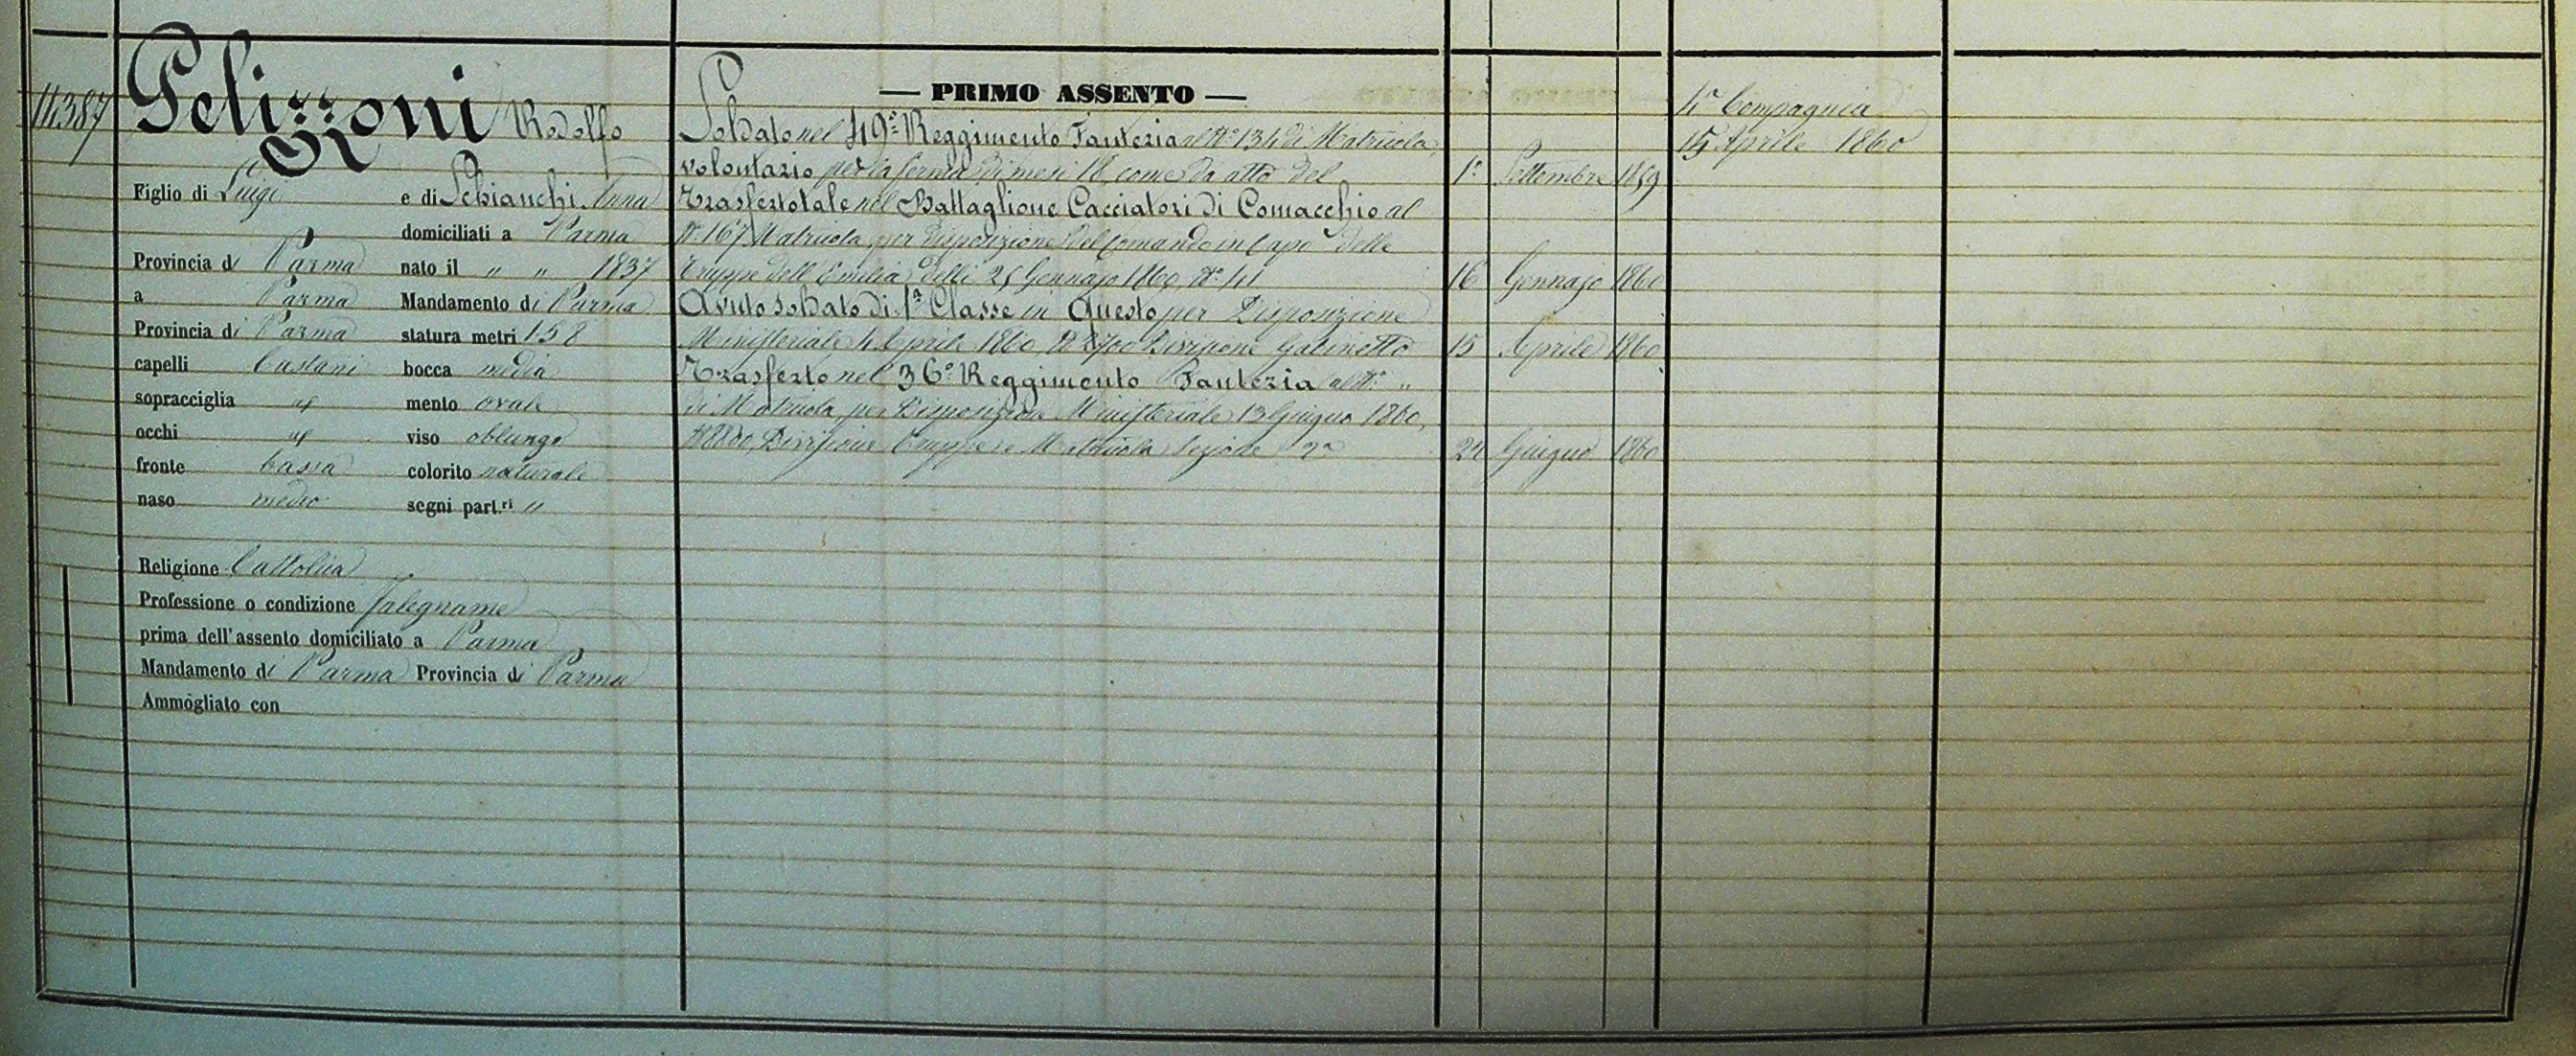 14387
Pelizzoni Rodolfo
Figlio di Luigi e di Schianchi Anna
domiciliati a Parma
Provincia di Parma nato il " " 1837
a Parma Mandamento di Parma
Provincia di Parma statura metri 1.58
capelli Castani bocca media
sopracciglia id mento ovale
occhi id viso oblungo
fronte bassa colorito naturale
naso medio segni part.ri "
Religione Cattolica
Professione o condizione falegname
prima dell'assento domiciliato a Parma
Mandamento di Parma Provincia di Parma
Ammogliato con
— PRIMO ASSENTO —
Soldato nel 49º Reggimento Fanteria al Nº 134 di Matricola,
volontario per la ferma di mesi 18, come da atto del 1º Settembre 1859
Trasferto tale nel Battaglione Cacciatori di Comacchio al
Nº 167 Matricola, per disposizione del Comando in Capo delle
Truppe dell'Emilia delli 25 Gennajo 1860, Nº 41 16 Gennajo 1860
Avuto soldato di 1ª Classe in Questo per Disposizione
Ministeriale 4 Aprile 1860, Nº 2700 Divisione Gabinetto 15 Aprile 1860
Trasferto nel 36º Reggimento Fanteria al Nº "
di Matricola, per Disposizione Ministeriale 13 Giugno 1860,
Nº 8800, Divisione Truppe e Matricola Sezione 2ª 24 Giugno 1860
4ª Compagnia
15 Aprile 1860